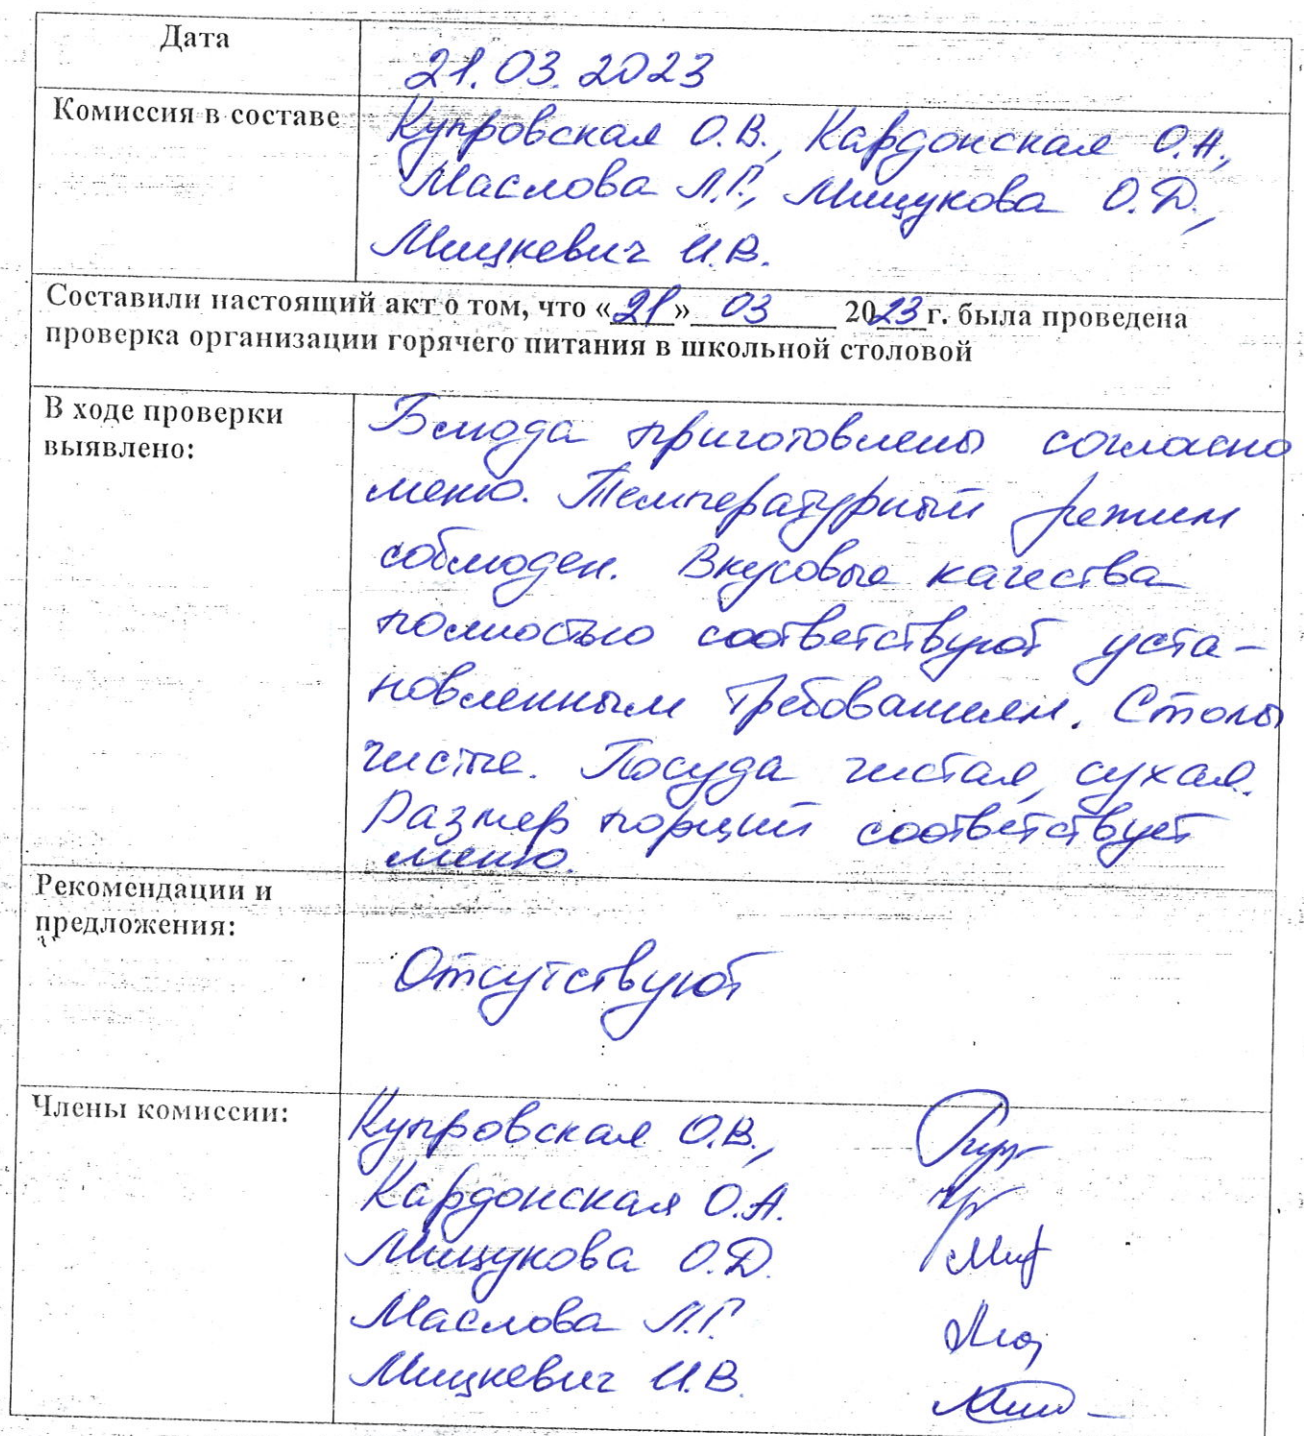 Дата
21.03.2023
Комиссия в составе
Купровская О.В., Кардонская О.А.,
Маслова Л.Г., Мищукова О.Д.,
Мицкевич И.В.
Составили настоящий акт о том, что «21» 03 2023г. была проведена
проверка организации горячего питания в школьной столовой
В ходе проверки
выявлено:
Блюда приготовлены согласно
меню. Температурный режим
соблюден. Вкусовые качества
полностью соответствуют уста-
новленным требованиям. Столы
чистые. Посуда чистая, сухая.
Размер порций соответствует
меню.
Рекомендации и
предложения:
Отсутствуют
Члены комиссии:
Купровская О.В.,
Кардонская О.А.
Мищукова О.Д.
Маслова Л.Г.
Мицкевич И.В.